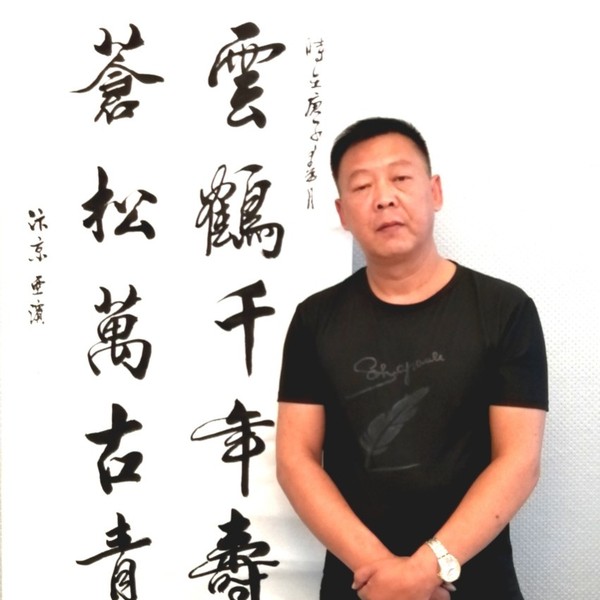 時在庚子春月
雲鶴千年壽
蒼松萬古青
汴京亜濱